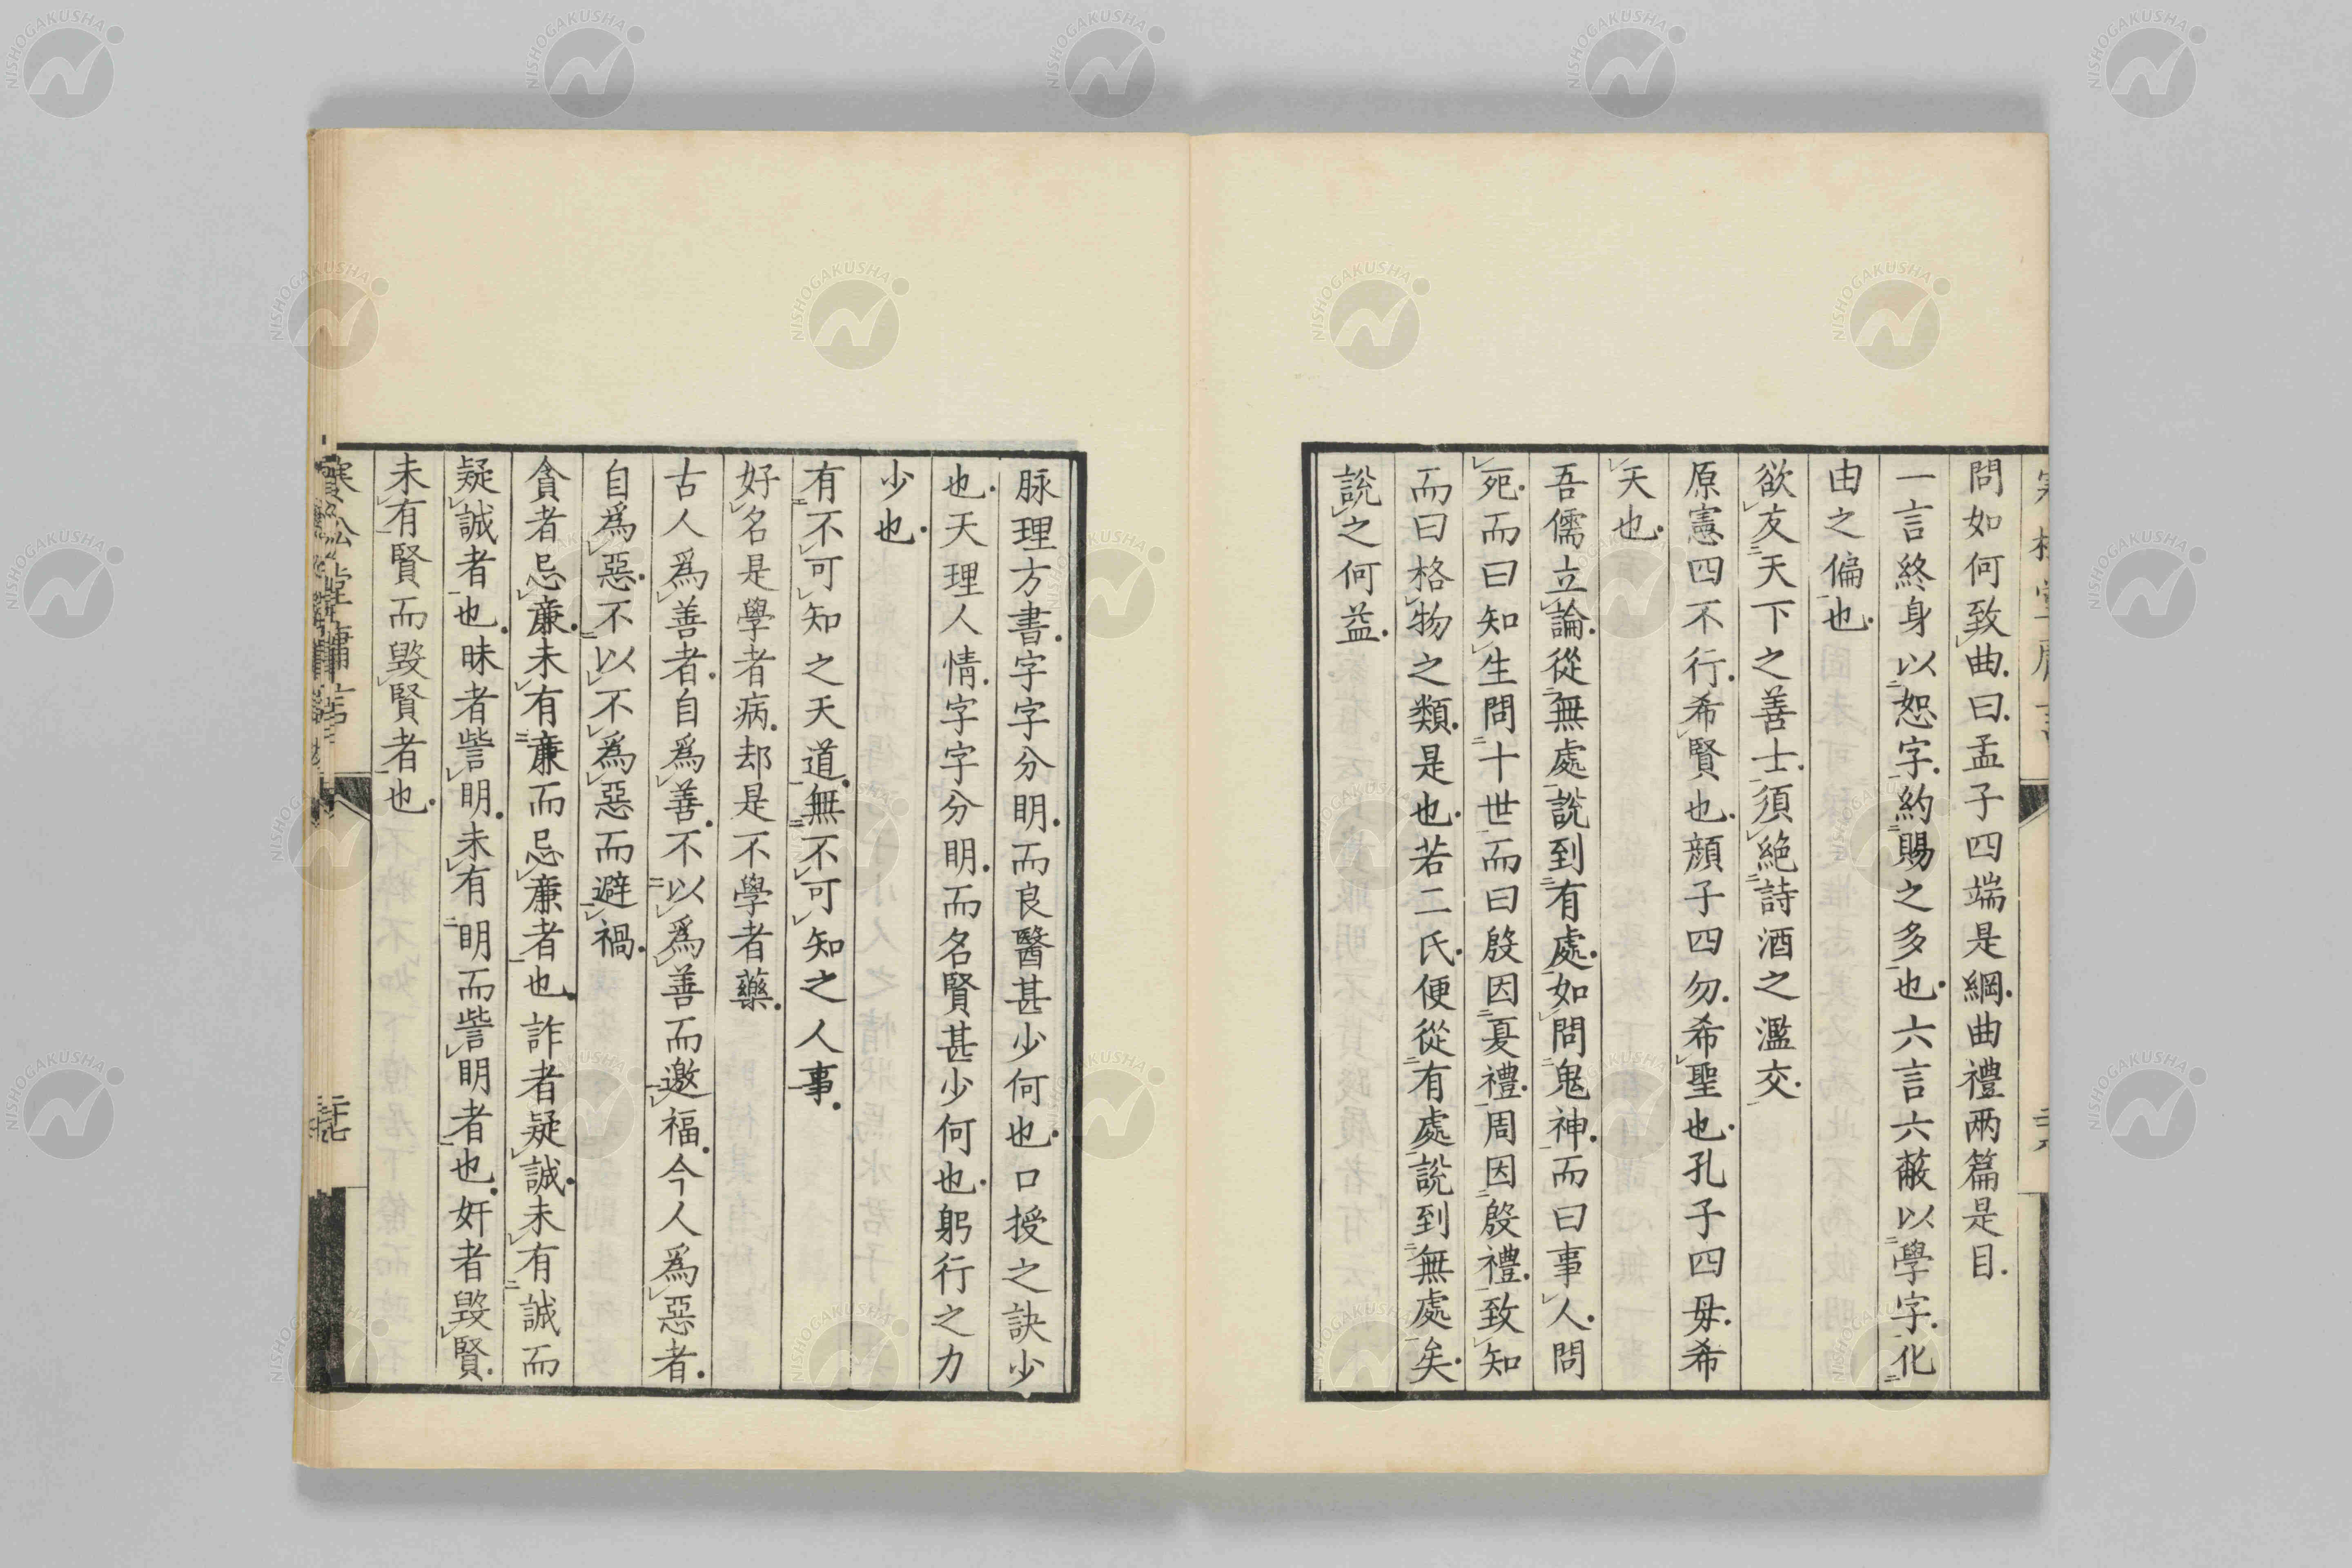 問如何致曲曰孟子四端是綱曲禮兩篇是目
一言終身以恕字約賜之多也六言六蔽以學字化
由之偏也
欲友天下之善士須絶詩酒之濫交
原憲四不行希賢也顔子四勿希聖也孔子四毋希
天也
吾儒立論從無處說到有處如問鬼神而曰事人問
死而曰知生問十世而曰殷因夏禮周因殷禮致知
而曰格物之類是也若二氏便從有處說到無處矣
說之何益
脉理方書字字分明而良醫甚少何也口授之訣少
也天理人情字字分明而名賢甚少何也躬行之力
少也
有不可知之天道無不可知之人事
好名是學者病却是不學者藥
古人爲善者自爲善不以爲善而邀福今人爲惡者
自爲惡不以不爲惡而避禍
貪者忌亷未有亷而忌亷者也詐者疑誠未有誠而
疑誠者也昧者訾明未有明而訾明者也奸者毀賢
未有賢而毀賢者也
NISHOGAKUSHA